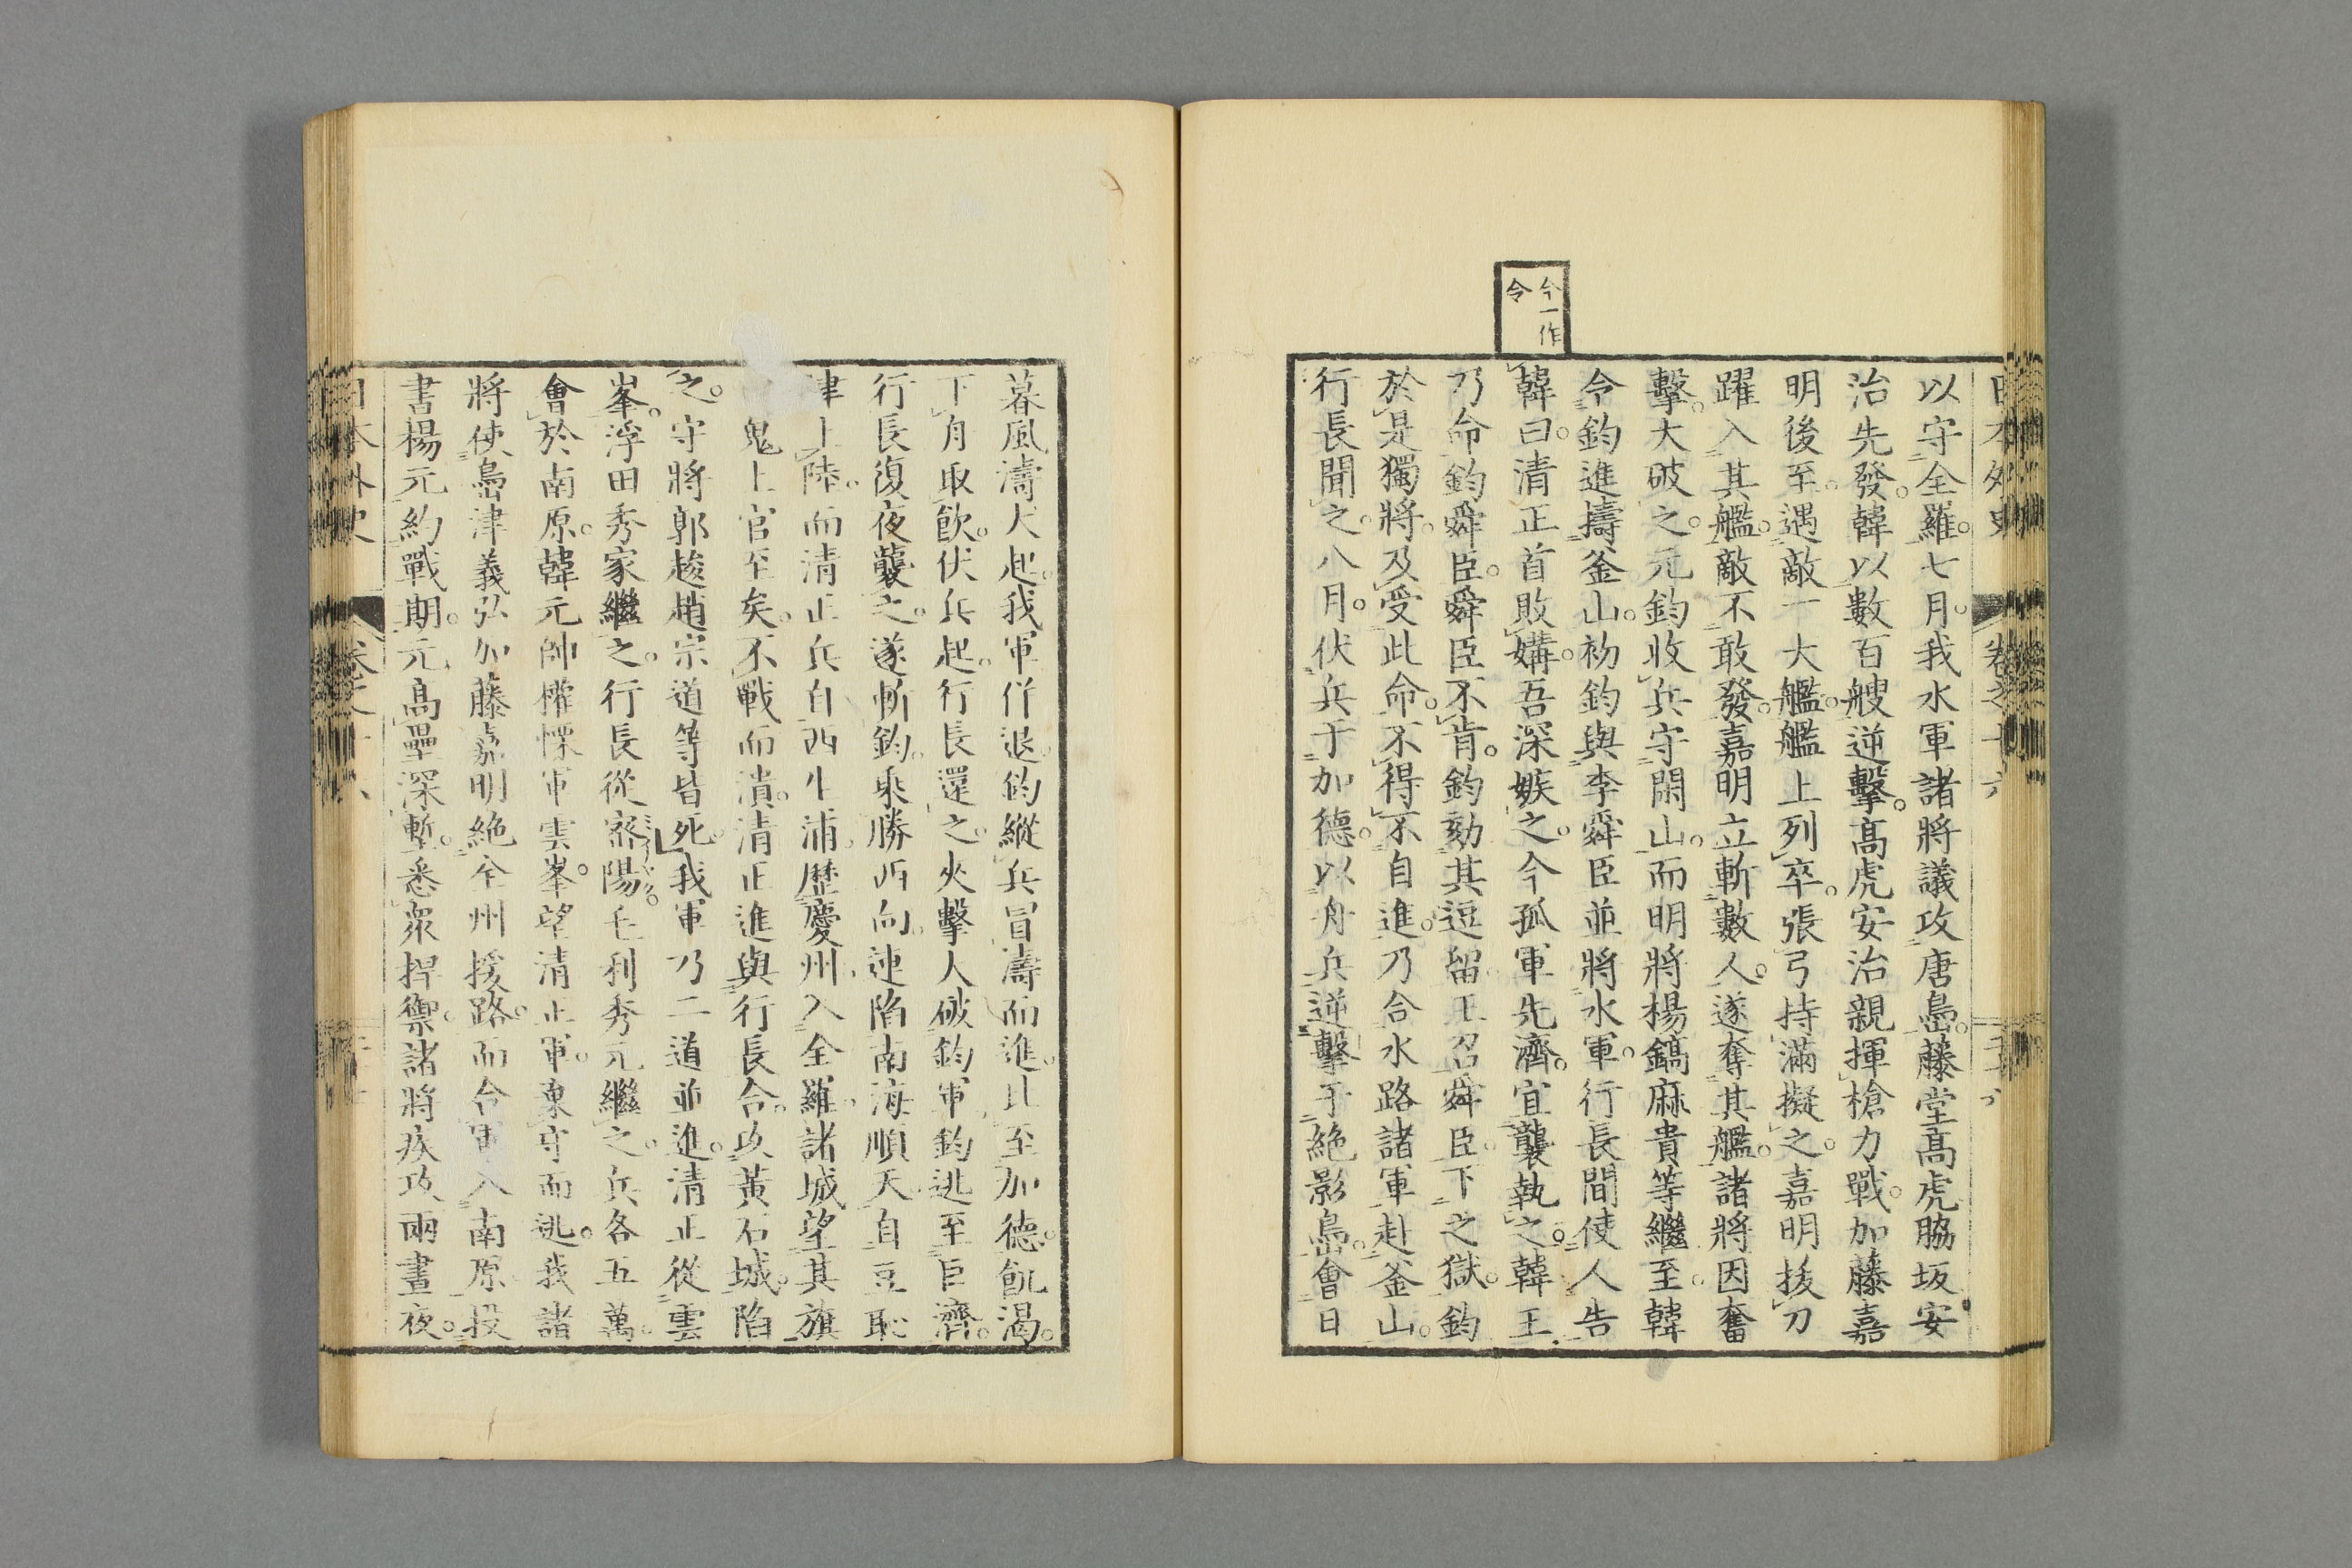 今一作
令
日本外史 卷之十六
以守全羅。七月。我水軍諸將議攻唐島。藤堂高虎脇坂安
治先發。韓以數百艘逆擊。高虎安治親揮槍力戰。加藤嘉
明後至。遇敵一大艦。艦上列卒。張弓持滿擬之。嘉明拔刀
躍入其艦。敵不敢發。嘉明立斬數人。遂奪其艦。諸將因奮
擊。大破之。元鈞收兵守閑山。而明將楊鎬麻貴等繼至。韓
令鈞進擣釜山。初鈞與李舜臣並將水軍。行長間使人告
韓曰。清正首敗媾。吾深嫉之。今孤軍先濟。宜襲執之。韓王
乃命鈞舜臣。舜臣不肯。鈞劾其逗留。王召舜臣。下之獄。鈞
於是獨將。及受此命。不得不自進。乃合水路諸軍赴釜山。
行長聞之。八月。伏兵于加德。以舟兵逆擊于絕影島。會日
暮風濤大起。我軍佯退。鈞縱兵冒濤而進。比至加德。飢渴。
下舟取飲。伏兵起。行長還之。夾擊大破鈞軍。鈞逃至巨濟。
行長復夜襲之。遂斬鈞。乘勝西向。連陷南海順天。自豆恥
津上陸。而清正兵自西生浦。歷慶州。入全羅。諸城望其旗
鬼上官至矣。不戰而潰。清正進與行長合。攻黃石城。陷
之。守將郭䞭趙宗道等皆死。我軍乃二道並進。清正從雲
峯。浮田秀家繼之。行長從密陽。毛利秀元繼之。兵各五萬。
會於南原。韓元帥權慄軍雲峯。望清正軍。棄守而逃。我諸
將使島津義弘加藤嘉明絕全州援路。而合軍入南原。投
書楊元約戰期。元高壘深塹。悉衆捍禦。諸將疾攻兩晝夜。
日本外史 卷之十六